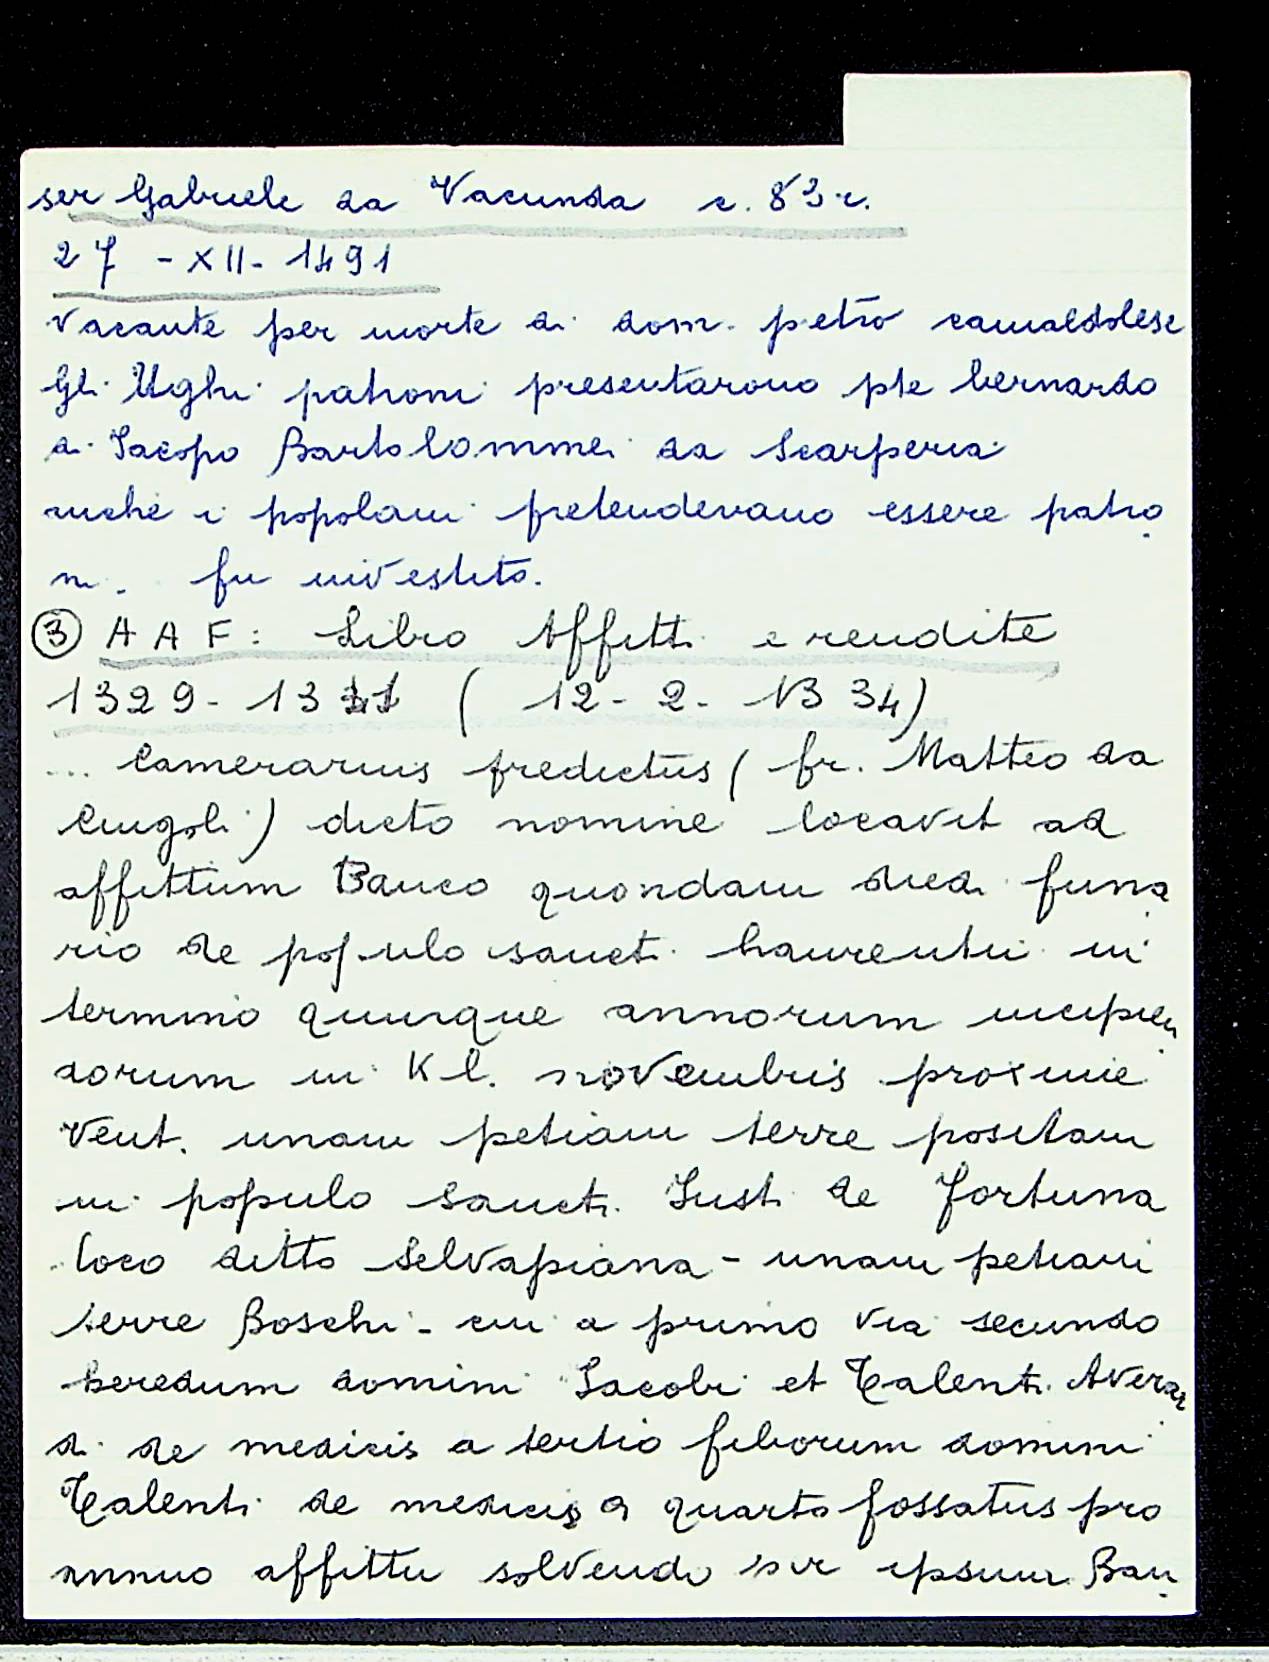 ser Gabriele da Vacunda c. 83 r.
27 - XII - 1491
vacante per morte di dom. petro camaldolese
Gli Ughi patroni presentarono pte bernardo
di Iacopo Bartolommei da Scarperia
anche i popolani pretendevano essere patro
ni. fu investito.
③ AAF: Libro Affitti e rendite
1329 - 13 (12 - 2 - NB 34)
... Camerarius predictus (fr. Matteo da
Cingoli) dicto nomine locavit ad
affittum Banco quondam funa
rio de populo sancti Laurentii in
termino quinque annorum incipien
dorum in Kl. novembris proxime
vent. unam petiam terre positam
in populo Sancti Iusti de Fortuna
loco ditto Selvapiana - unam petiam
terre Boschi - cui a primo via secundo
heredum domini Iacobi et Talenti Averar
di de medicis a tertio filiorum domini
Talenti de medicis a quarto fossatus pro
annuo affittu solvendo per ipsum Ban